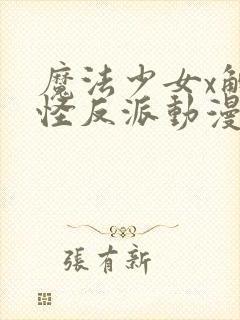 魔法少女x觸
怪反派動漫
張有新